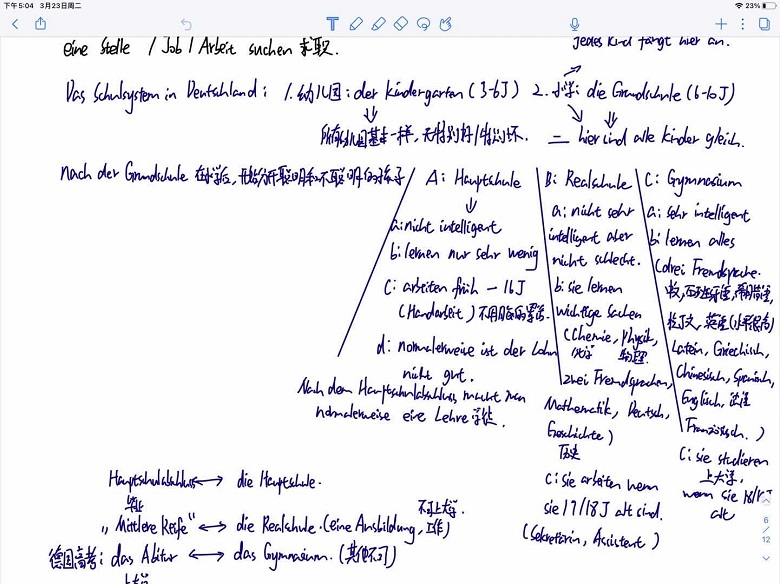 下午5:04 3月23日周二
23%
eine Stelle / Job / Arbeit suchen 求职.
jedes Kind fängt hier an.
Das Schulsystem in Deutschland: 1. 幼儿园: der Kindergarten (3-6J) 2. 小学: die Grundschule (6-10J)
所有幼儿园基本一样, 无特别好/特别坏.
= hier sind alle Kinder gleich.
nach der Grundschule 在小学后, 开始分开聪明和不聪明的孩子
A: Hauptschule
a: nicht intelligent
b: lernen nur sehr wenig
C: arbeiten früh - 16J
(Handarbeit) 不用脑的
d: normalerweise ist der Lohn
nicht gut.
Nach dem Hauptschulabschluss macht man
normalerweise eine Lehre 学徒.
B: Realschule
a: nicht sehr
intelligent aber
nicht schlecht.
b: sie lernen
wichtige Sachen
(Chemie, Physik,
化学 物理
zwei Fremdsprachen,
Mathematik, Deutsch,
Geschichte)
历史
C: sie arbeiten wenn
sie 17/18J alt sind.
(Sekretärin, Assistent)
C: Gymnasium
a: sehr intelligent
b: lernen alles
(drei Fremdsprache.
西班牙语, 希腊语,
拉丁文, 英语
Latein, Griechisch,
Chinesisch, Spanisch,
Englisch, 法语
Französisch.)
C: sie studieren
上大学,
wenn sie 18/19J
alt
Hauptschulabschluss ↔ die Hauptschule.
毕业
„Mittlere Reife" ↔ die Realschule. (eine Ausbildung, 工作)
不可上大学.
德国高考: das Abitur ↔ das Gymnasium. (其他不可)
上大学
6
/
12